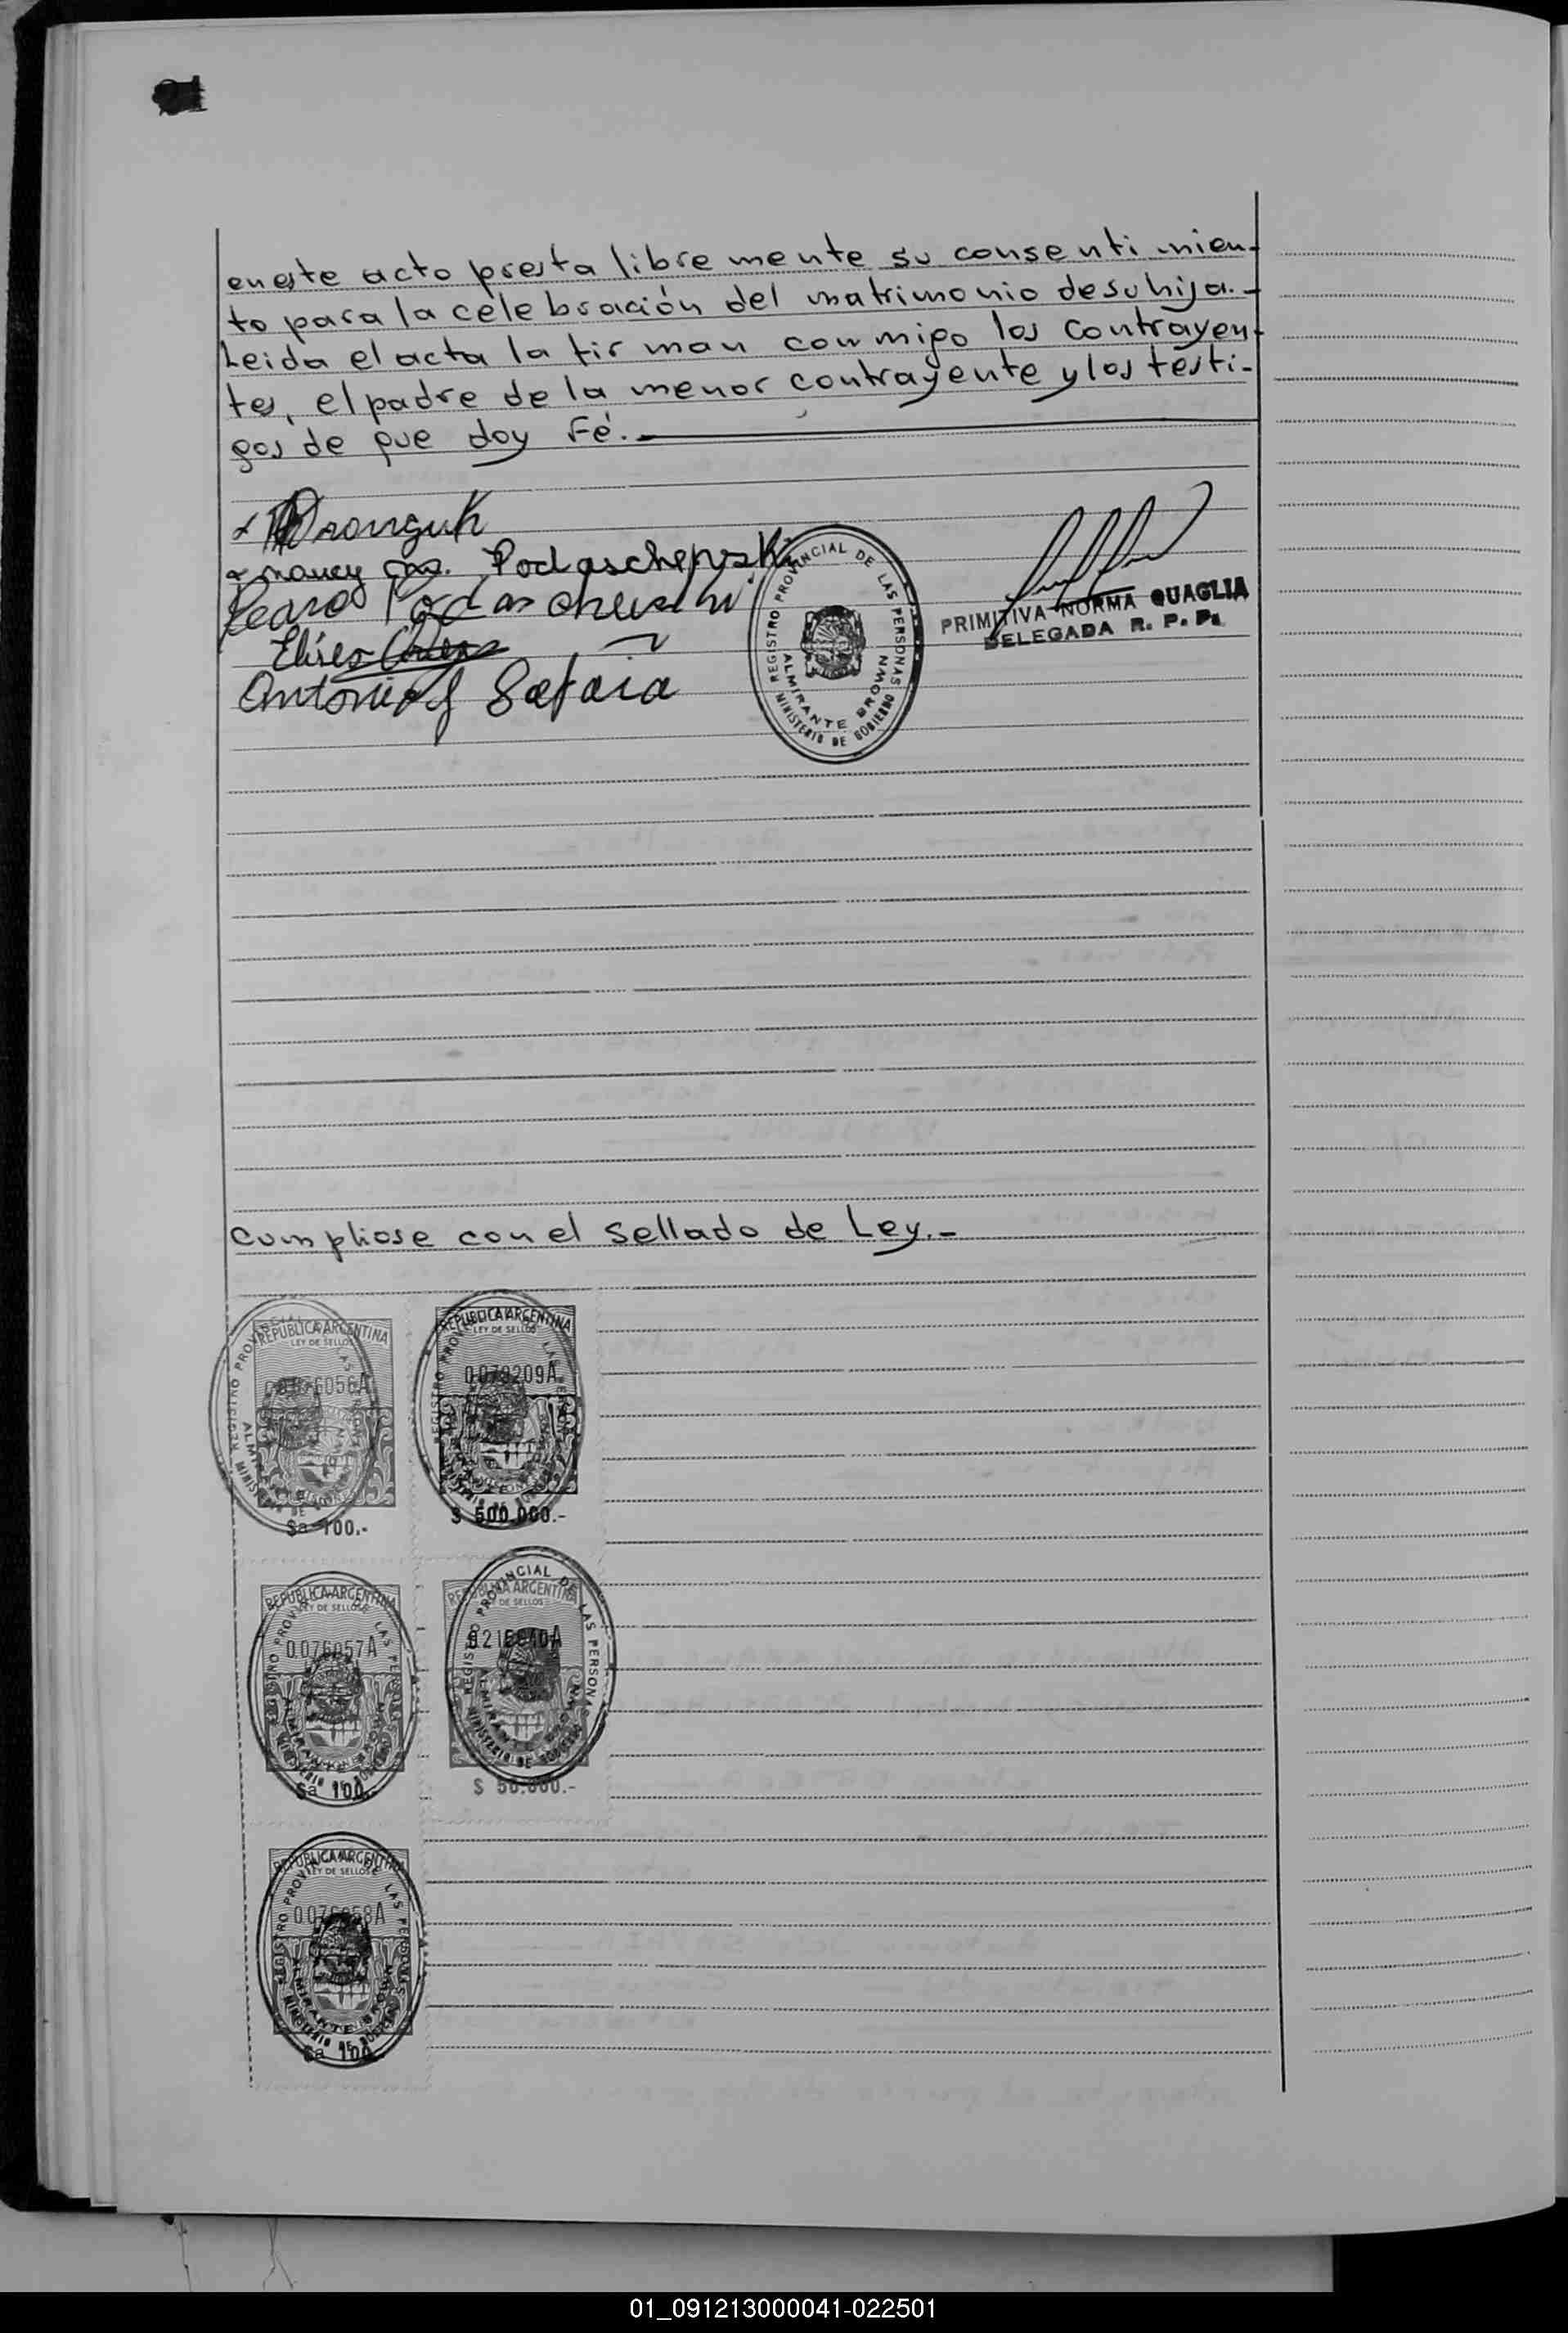 en este acto presta libremente su consentimien-
to para la celebración del matrimonio de su hija.-
Leida el acta la firman conmigo los contrayen-
tes, el padre de la menor contrayente y los testi-
gos de que doy Fé.-
Nancy Podaschevski
Pedro Podaschevski
PRIMITIVA NORMA QUAGLIA
DELEGADA R. P. P.
Eliseo
Antonio J Safaia
REGISTRO PROVINCIAL DE LAS PERSONAS
ALMIRANTE BROWN
MINISTERIO DE GOBIERNO
Cumpliose con el sellado de Ley.-
REPUBLICA ARGENTINA
LEY DE SELLOS
0.076056A
$a 100.-
REPUBLICA ARGENTINA
LEY DE SELLOS
0.079209A
$ 500.000.-
REPUBLICA ARGENTINA
LEY DE SELLOS
0.076057A
$a 100.-
REPUBLICA ARGENTINA
LEY DE SELLOS
$ 50.000.-
REPUBLICA ARGENTINA
LEY DE SELLOS
0.076058A
$a 100.-
01_091213000041-022501